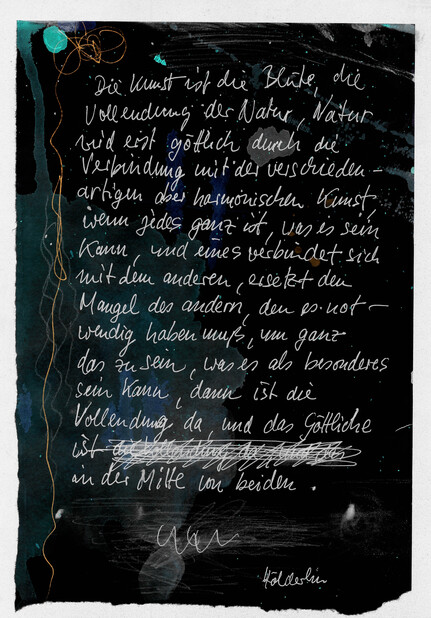 Die Kunst ist die Blüte, die
Vollendung der Natur, Natur
wird erst göttlich durch die
Verbindung mit der verschieden-
artigen aber harmonischen Kunst,
wenn jedes ganz ist, was es sein
kann, und eines verbindet sich
mit dem anderen, ersetzt den
Mangel des andern, den es not-
wendig haben muß, um ganz
das zu sein, was es als besonderes
sein kann, dann ist die
Vollendung da und das Göttliche
ist
in der Mitte von beiden.
Hölderlin